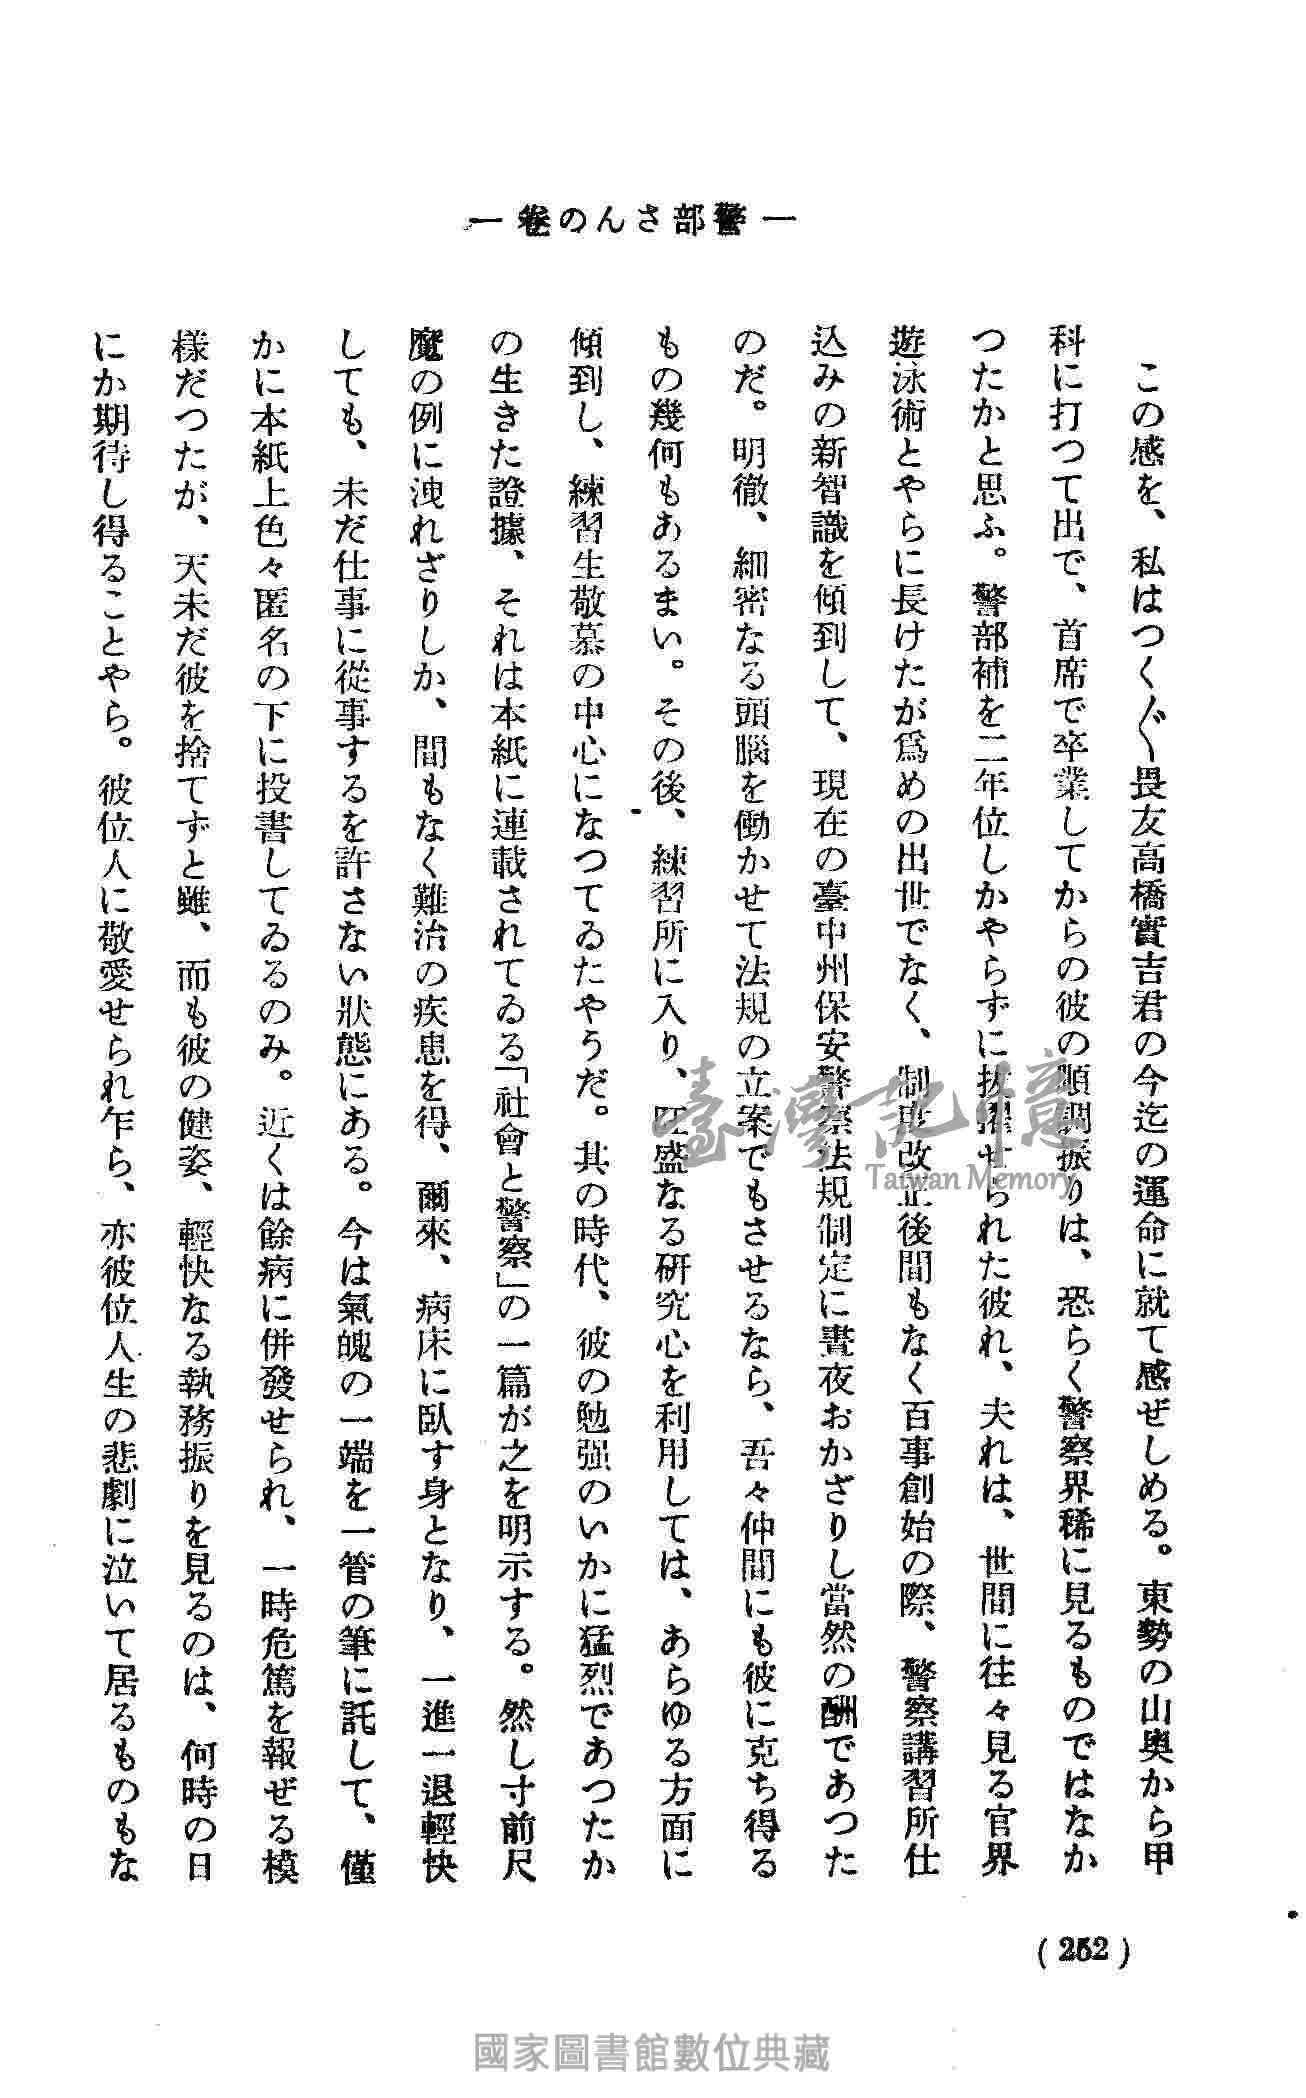 ― 警部さんの巻 ―
この感を、私はつく〴〵畏友高橋實吉君の今迄の運命に就て感ぜしめる。東勢の山奥から甲
科に打つて出で、首席で卒業してからの彼の順調振りは、恐らく警察界稀に見るものではなか
つたかと思ふ。警部補を二年位しかやらずに抜擢せられた彼れ、夫れは、世間に往々見る官界
遊泳術とやらに長けたが爲めの出世でなく、制度改正後間もなく百事創始の際、警察講習所仕
込みの新智識を傾到して、現在の臺中州保安警察法規制定に晝夜おかざりし當然の酬であつた
のだ。明徹、細密なる頭腦を働かせて法規の立案でもさせるなら、吾々仲間にも彼に克ち得る
もの幾何もあるまい。その後、練習所に入り、旺盛なる研究心を利用しては、あらゆる方面に
傾到し、練習生敬慕の中心になつてゐたやうだ。其の時代、彼の勉强のいかに猛烈であつたか
の生きた證據、それは本紙に連載されてゐる「社會と警察」の一篇が之を明示する。然し寸前尺
魔の例に洩れざりしか、間もなく難治の疾患を得、爾來、病床に臥す身となり、一進一退輕快
しても、未だ仕事に從事するを許さない狀態にある。今は氣魄の一端を一管の筆に託して、僅
かに本紙上色々匿名の下に投書してゐるのみ。近くは餘病に併發せられ、一時危篤を報ぜる模
樣だつたが、天未だ彼を捨てずと雖、而も彼の健姿、輕快なる執務振りを見るのは、何時の日
にか期待し得ることやら。彼位人に敬愛せられ乍ら、亦彼位人生の悲劇に泣いて居るものもな
(252)
臺灣記憶
Taiwan Memory
國家圖書館數位典藏